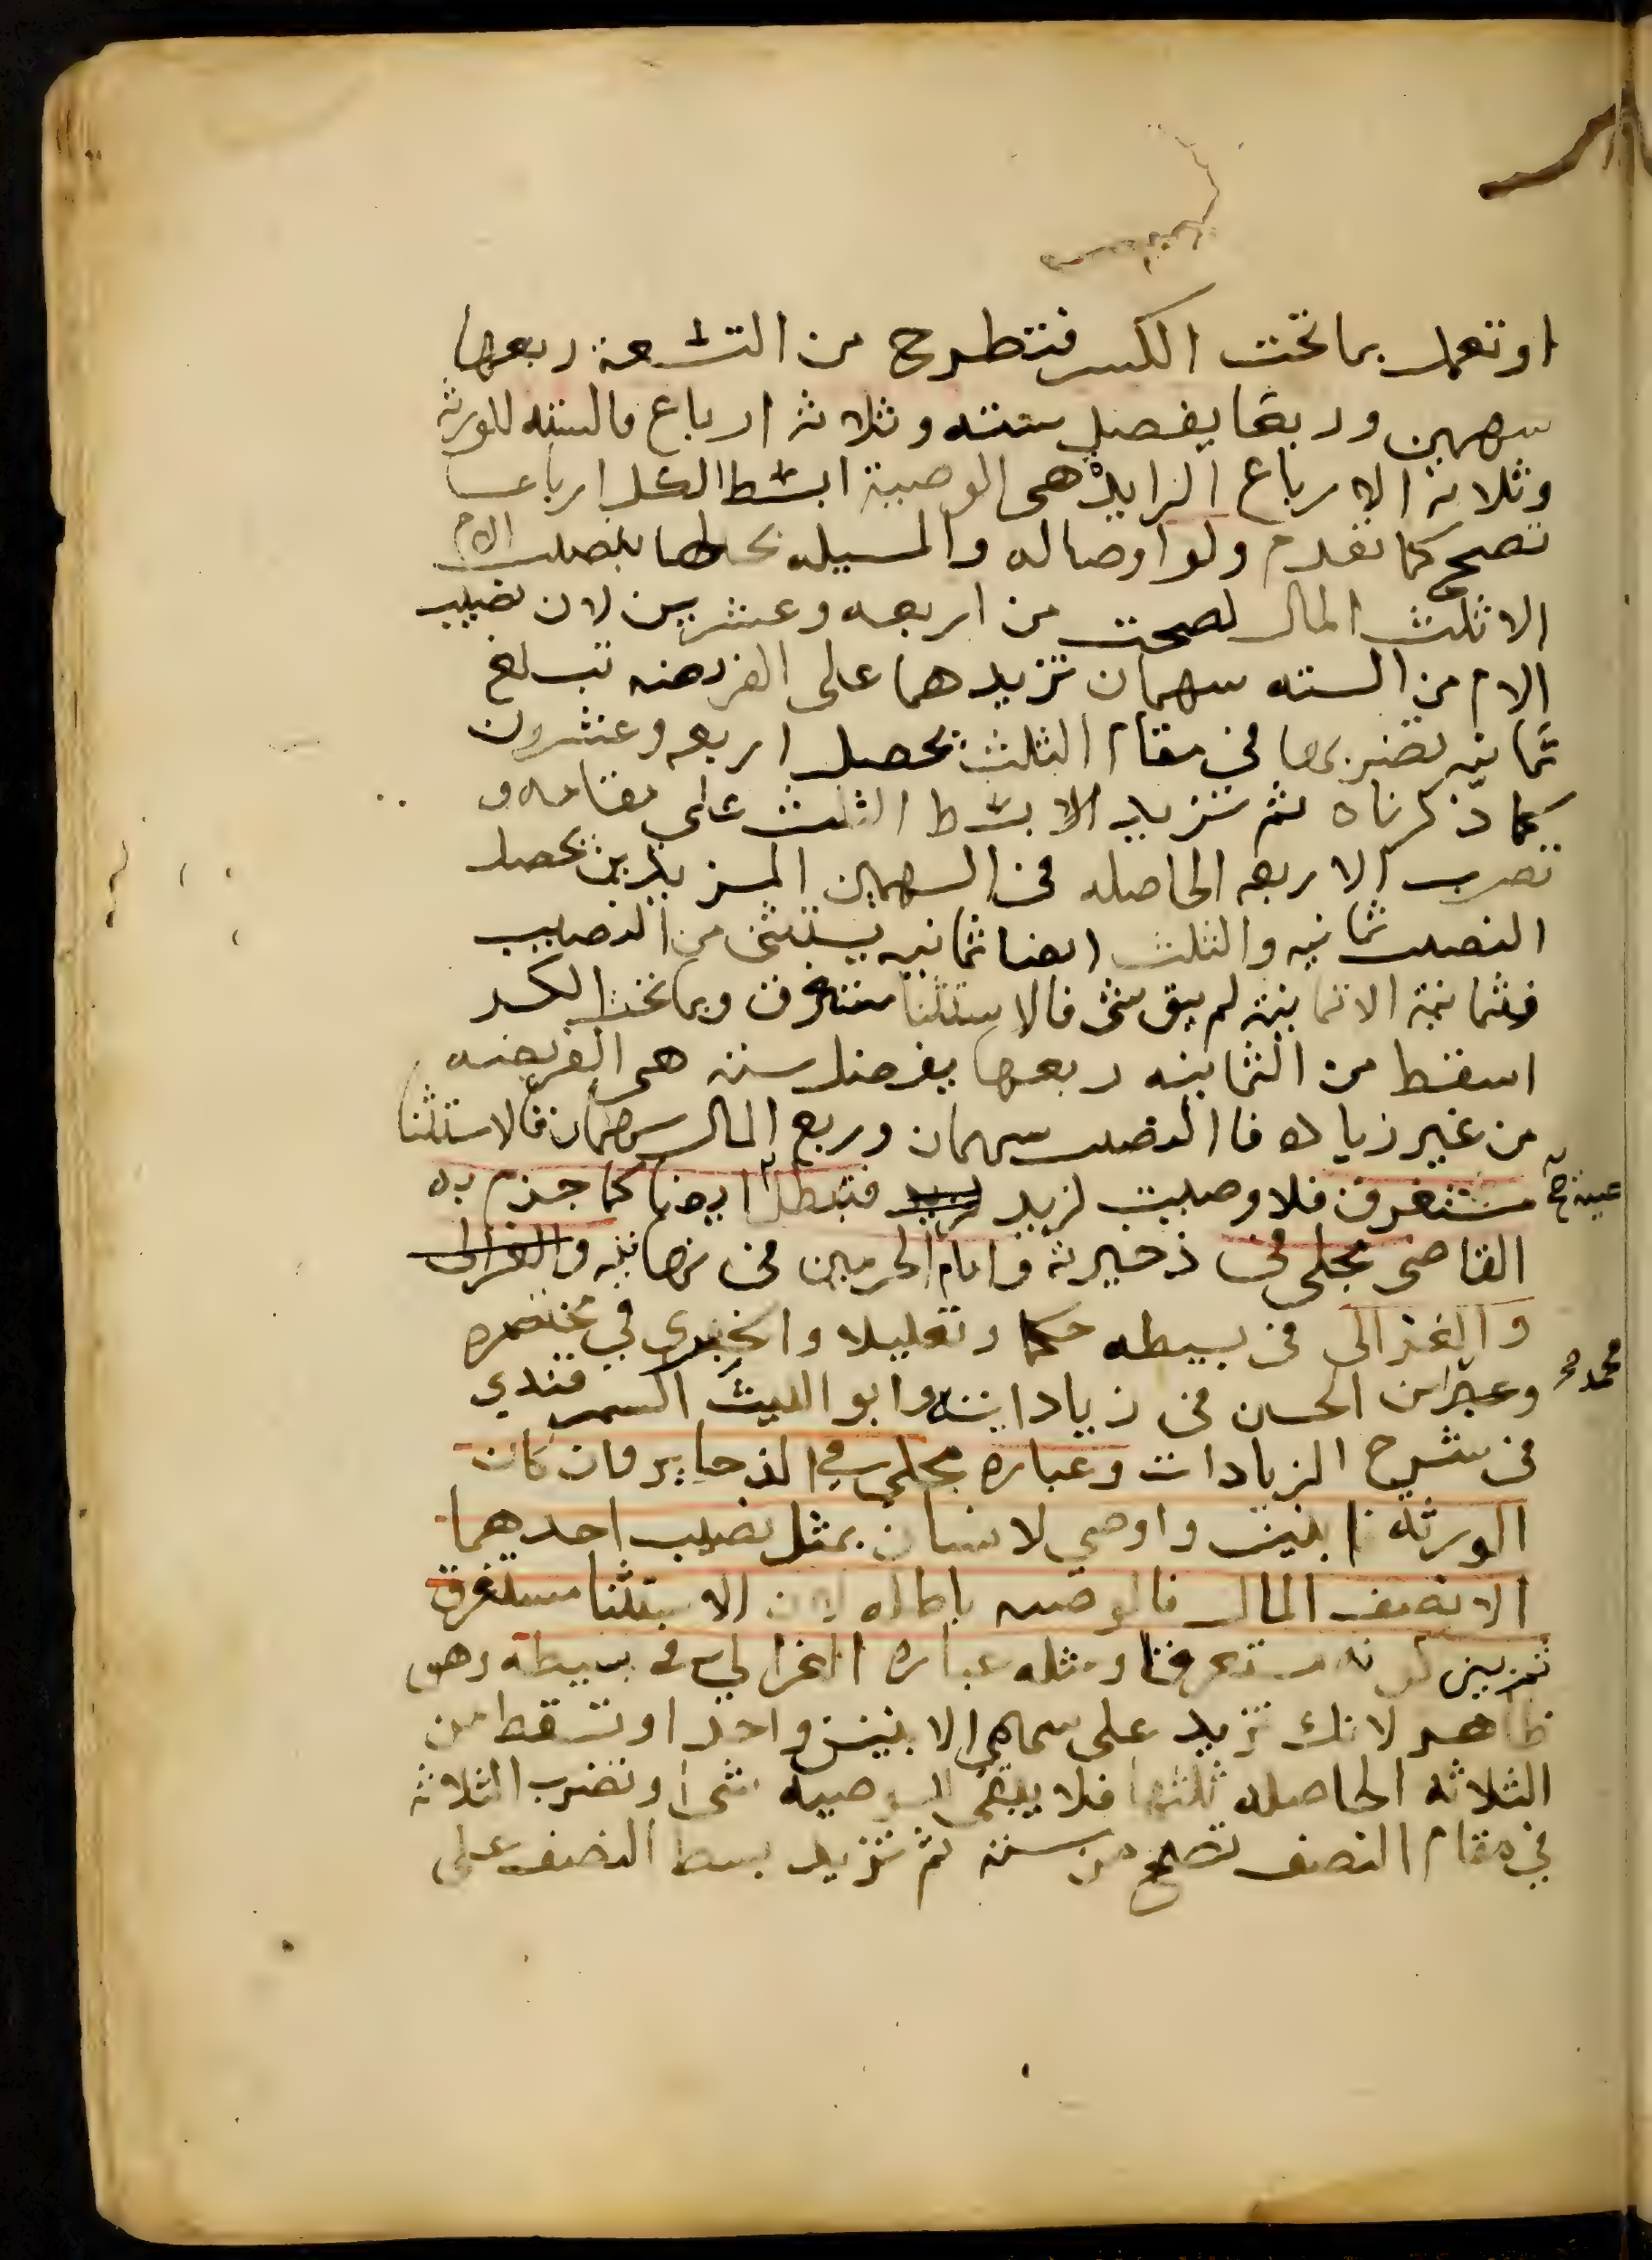 او تعمل بما تحت الكسر فتطرح من التسعة ربعها
سهمين وربعا يفضل سته وثلاثة ارباع فالسته للورثة
وثلاثة الارباع الزايدة هى الوصية ابسط الكل ارباعا
تصح كما تقدم ولو اوصا له والمسيله بحالها بنصيب الام
الا ثلث المال لصحت من اربعه وعشرين لان نصيب
الام من السته سهمان تزيدهما على الفريضه تبلغ
ثمانيه تضربها في مقام الثلث يحصل اربعه وعشرون
كما ذكرناه ثم تزيد الا بسط الثلث على مقامه و
تضرب الاربعه الحاصله فى السهمين المزيدين يحصل
النصيب ثمانيه والثلث ايضا ثمانيه يستثنى من النصيب
فثمانية الا ثمانية لم يبق شى فالاستثنا مستغرق وبما تحت الكسر
اسقط من الثمانيه ربعها يفضل سته هى الفريضه
من غير زياده فا النصيب سهمان وربع المال سهمان فالاستثنا
مستغرق فلا وصيت لزيد لزيد فتبطل ايضا كما جزم به
القاضى مجلى فى ذخيرته وامام الحرمين فى نهايته والغزالى
والغزالى فى بسيطه حكما وتعليلا والخبرى في مختصره
وعبد ابن الحسن فى زياداته وابو الليث السمرقندي
محمد
فى شرح الزيادات وعباره مجلى في الذحاير فان كان
الورثة ابنين واوصى لانسان بمثل نصيب احدهما
الا نصف المال فالوصيه باطله لان الاستثنا مستغرق
ثم بين كونه مستغرقا ومثله عباره الغزالي في بسيطه وهو
ظاهر لانك تزيد على سهامي الابنين واحدا وتسقط من
الثلاثه الحاصله ثلثها فلا يبقى للوصيه شى وتضرب الثلاثة
في مقام النصف تصح من ستة ثم تزيد بسط النصف على